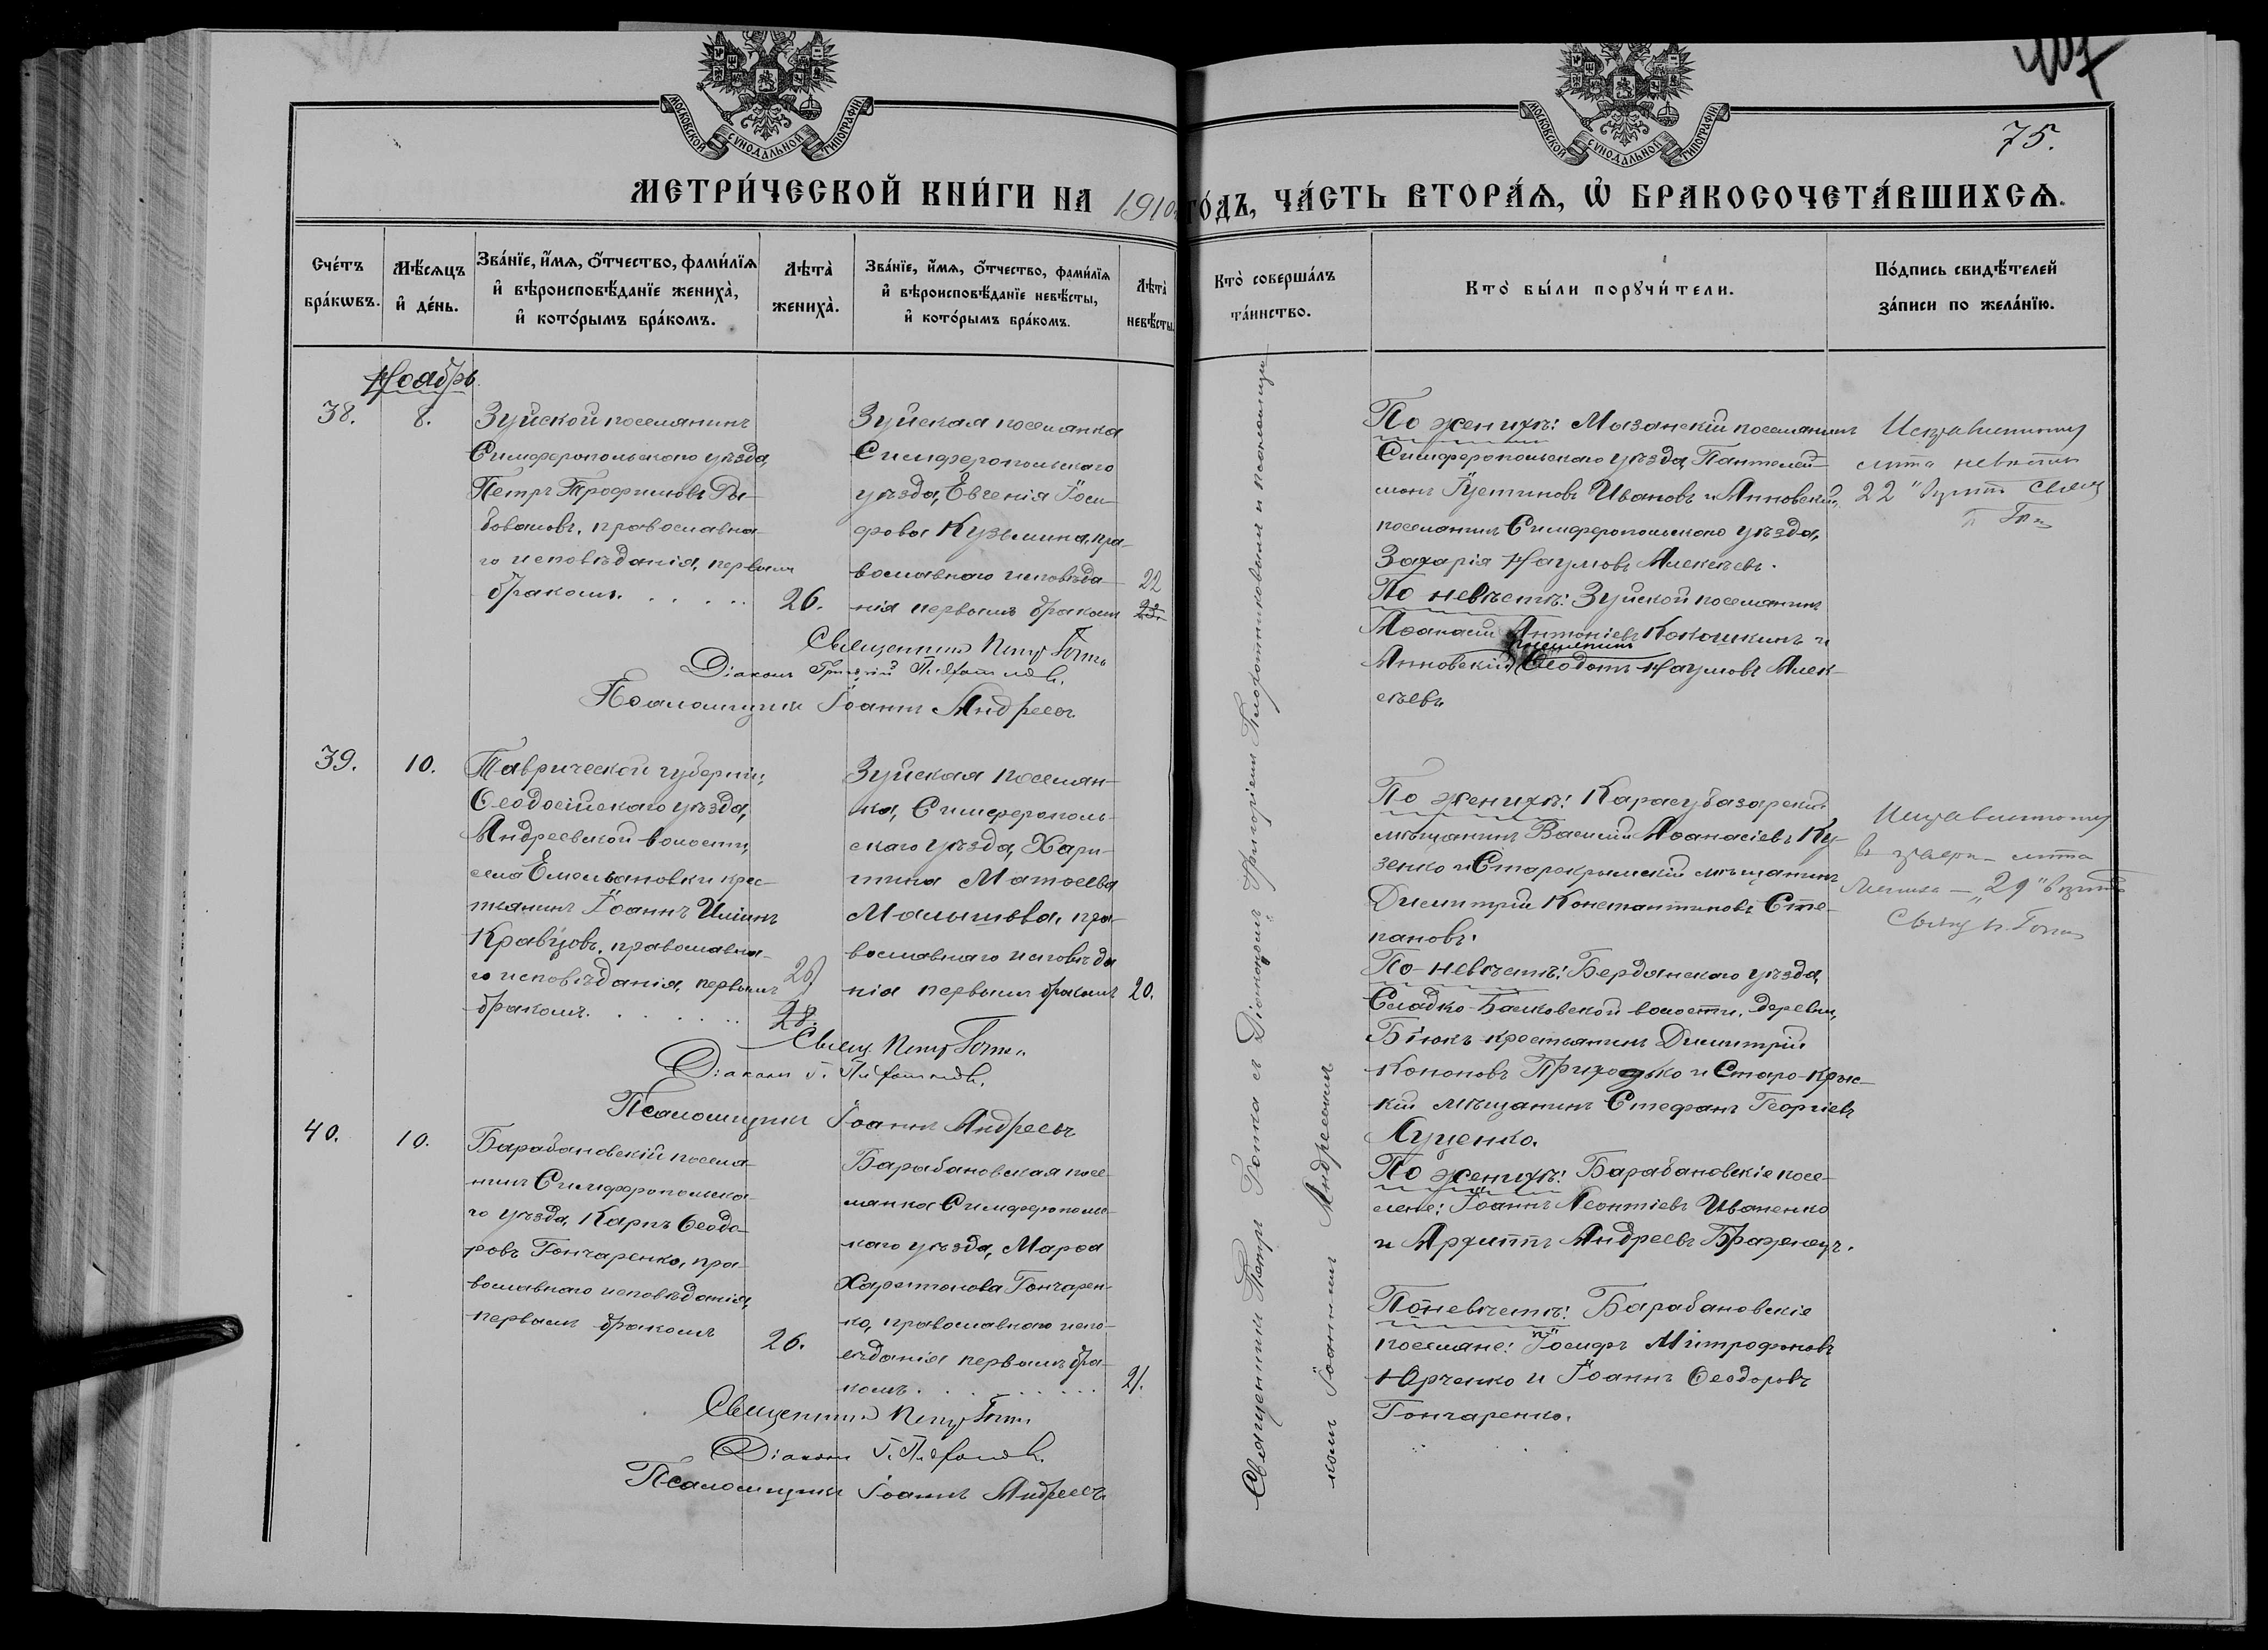 407
75.
МОСКОВСКОЙ СУНОДАЛЬНОЙ ТИПОГРАФІИ
МОСКОВСКОЙ СУНОДАЛЬНОЙ ТИПОГРАФІИ
МЕТРИ́ЧЕСКОЙ КНИ́ГИ НА 1910 ГО́ДЪ, ЧА́СТЬ ВТОРА́Ѧ, Ѽ БРАКОСОЧЕТА́ВШИХСѦ.
Сче́тъ бра́кωвъ.
Мѣ́сѧцъ и҆ де́нь.
Зва́нїе, и҆́мѧ, ѻ҆́тчество, фами́лїѧ и҆ вѣроисповѣ́данїе жениха̀, и҆ кото́рымъ бра́комъ.
Лѣта̀ жениха̀.
Зва́нїе, и҆́мѧ, ѻ҆́тчество, фами́лїѧ и҆ вѣроисповѣ́данїе невѣ́сты, и҆ кото́рымъ бра́комъ.
Лѣта̀ невѣ́сты.
Кто̀ соверша́лъ та́инство.
Кто̀ бы́ли порꙋчи́тели.
По́дпись свидѣ́телей за́писи по жела́нїю.
Ноябрь.
38.
8.
Зуйской поселянинъ
Симферопольскаго уѣзда,
Петръ Трофимовъ Ры-
боваловъ, православна-
го исповѣданія, первымъ
бракомъ.
26.
Зуйская поселянка
Симферопольскаго
уѣзда, Евгенія Іоси-
фова Кузьмина, пра-
вославнаго исповѣда-
нія первымъ бракомъ
22
23.
Священникъ Петръ Гота
Діаконъ Григорій
Псаломщикъ Іоаннъ Андреевъ
По женихѣ: Мазанскій поселянинъ
Симферопольскаго уѣзда, Пантелей-
монъ Іустиновъ Ивановъ и Анновскій
поселянинъ Симферопольскаго уѣзда,
Захарія Наумовъ Алексѣевъ.
По невѣстѣ: Зуйской поселянинъ
Аѳанасій Антоніевъ Кокошкинъ и
поселянинъ
Анновскій Ѳеодотъ Наумовъ Алек-
сѣевъ
Исправленному
лѣта невѣсты
22" вѣрить Свящ
П. Гота
39.
10.
Таврической губерніи,
Ѳеодосійскаго уѣзда,
Андреевской волости,
села Емельяновки крес-
тьянинъ Іоаннъ Иліинъ
Кравцовъ, православна-
го исповѣданія, первымъ
бракомъ.
29
28.
Зуйская поселян-
ка, Симферополь-
скаго уѣзда, Хари-
тина Матѳеева
Малышева, пра-
вославнаго исповѣда
нія первымъ бракомъ
20.
Свящ. Петръ Гота
Діаконъ Г.
Псаломщикъ Іоаннъ Андреевъ
По женихѣ: Карасубазарскій
мѣщанинъ Василій Аѳанасіевъ Ку-
зенко и Старокрымскій мѣщанинъ
Димитрій Константиновъ Сте-
пановъ.
По невѣстѣ: Бердянскаго уѣзда,
Сладко-Балковской волости, деревни,
Біюкъ крестьянинъ Димитрій
Кононовъ Приходько и Старо-Крымс-
кій мѣщанинъ Стефанъ Георгіевъ
Луценко.
Исправленному
в лѣта
жениха — "29" вѣрить
Свящ. П. Гота
40.
10.
Барабановскій поселя-
нинъ Симферопольска-
го уѣзда, Карпъ Ѳеодо-
ровъ Гончаренко, пра-
вославнаго исповѣданія,
первымъ бракомъ
26.
Барабановская посе-
лянка Симферополь-
скаго уѣзда, Марѳа
Харитонова Гончарен-
ко, православнаго испо-
вѣданія первымъ бра-
комъ.
21.
Священникъ Петръ Гота
Діаконъ Г.
Псаломщикъ Іоаннъ Андреевъ
По женихѣ: Барабановскіе посе-
ляне: Іоаннъ Леонтіевъ Иваненко
и Архиппъ Андреевъ Браженецъ.
По невѣстѣ: Барабановскіе
поселяне: Іосифъ Митрофановъ
Юрченко и Іоаннъ Ѳеодоровъ
Гончаренко.
Священникъ Петръ Гота съ Діакономъ Григоріемъ и псаломщи-
комъ Іоанномъ Андреевымъ